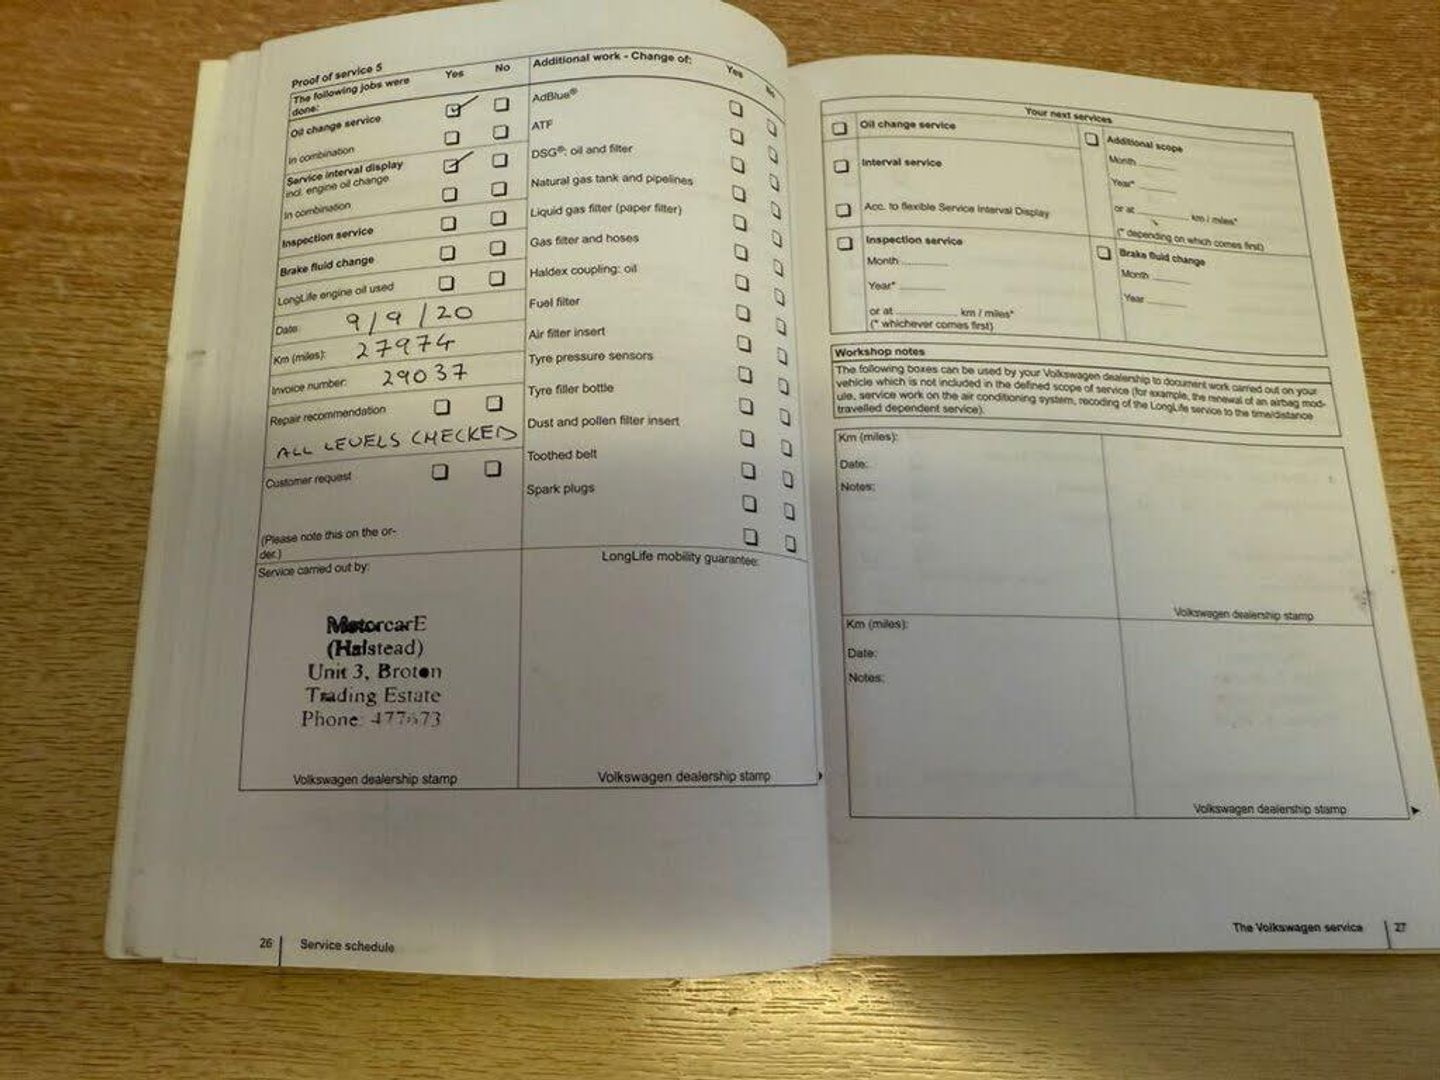 Proof of service 5
The following jobs were done: Yes No
Oil change service
In combination
Service interval display
incl. engine oil change
In combination
Inspection service
Brake fluid change
LongLife engine oil used
Date: 9/9/20
Km (miles): 27974
Invoice number: 29037
Repair recommendation
ALL LEVELS CHECKED
Customer request
(Please note this on the or-
der.)
Service carried out by:
MotorcarE
(Halstead)
Unit 3, Broton
Trading Estate
Phone:
Volkswagen dealership stamp
Additional work - Change of: Yes No
AdBlue®
ATF
DSG®: oil and filter
Natural gas tank and pipelines
Liquid gas filter (paper filter)
Gas filter and hoses
Haldex coupling: oil
Fuel filter
Air filter insert
Tyre pressure sensors
Tyre filler bottle
Dust and pollen filter insert
Toothed belt
Spark plugs
LongLife mobility guarantee:
Volkswagen dealership stamp
26 Service schedule
Your next services
Oil change service
Interval service
Acc. to flexible Service Interval Display
Inspection service
Month
Year*
or at km / miles*
(* whichever comes first)
Additional scope
Month
Year*
or at km / miles*
(* depending on which comes first)
Brake fluid change
Month
Year
Workshop notes
The following boxes can be used by your Volkswagen dealership to document work carried out on your
vehicle which is not included in the defined scope of service (for example, the renewal of an airbag mod-
ule, service work on the air conditioning system, recoding of the LongLife service to the time/distance
travelled dependent service).
Km (miles):
Date:
Notes:
Volkswagen dealership stamp
Km (miles):
Date:
Notes:
Volkswagen dealership stamp
The Volkswagen service 27